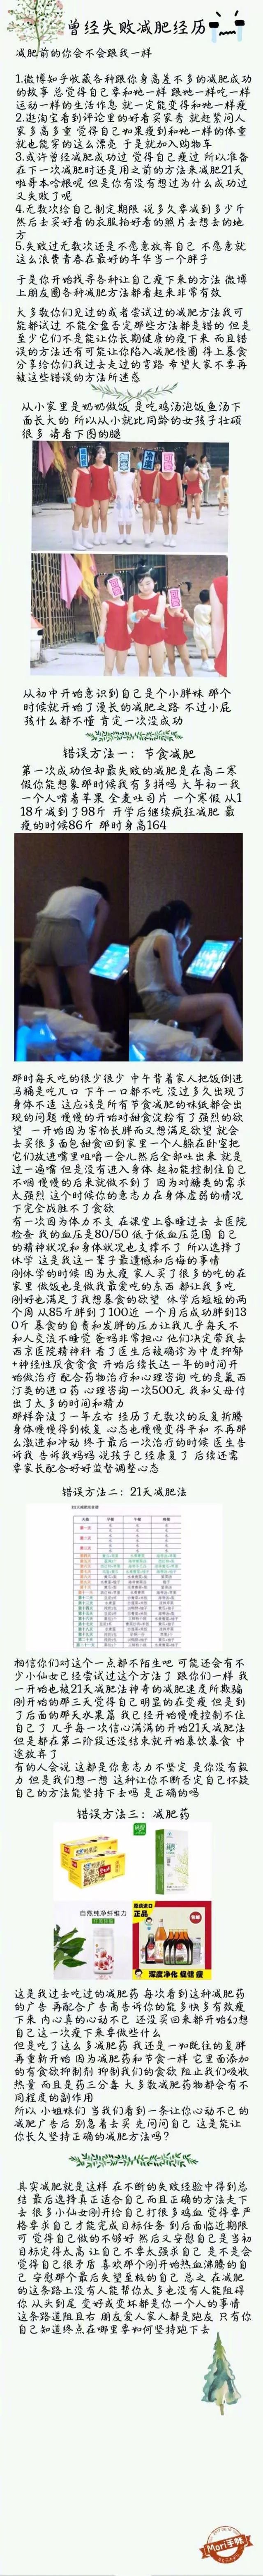 曾经失败减肥经历
减肥前的你会不会跟我一样
1.微博知乎收藏各种跟你身高差不多的减肥成功
的故事 总觉得自己要和她一样 跟她一样吃一样
运动一样的生活作息 就一定能变得和她一样瘦
2.逛淘宝看到评论里的好看买家秀 就赶紧问人
家多高多重 觉得自己如果瘦到和她一样的体重
就也能穿的这么漂亮 于是就加入购物车
3.或许曾经减肥成功过 觉得自己瘦过 所以准备
在下一次减肥时还是用之前的方法来减肥21天
啦哥本哈根呢 但是你有没有想过为什么成功过
又失败了呢
4.无数次给自己制定期限 说多久要减到多少斤
然后去买好看的衣服拍好看的照片去想去的地
方
5.失败过无数次还是不愿意放弃自己 不愿意就
这么浪费青春在最好的年华当一个胖子
于是你开始找寻各种让自己瘦下来的方法 微博
上朋友圈各种减肥方法都看起来非常有效
大多数你们见过的或者尝试过的减肥方法我可
能都试过 不能全盘否定那些方法都是错的 但是
至少它们不是能让你长期健康的瘦下来 而且错
误的方法还有可能让你陷入减肥怪圈 得上暴食
分享给你们我过去走过的弯路 希望大家不要再
被这些错误的方法所迷惑
从小家里是奶奶做饭 是吃鸡汤泡饭鱼汤下
面长大的 所以从小就比同龄的女孩子壮硕
很多 请看下图的腿
从初中开始意识到自己是个小胖妹 那个
时候就开始了漫长的减肥之路 不过小屁
孩什么都不懂 肯定一次没成功
错误方法一：节食减肥
第一次成功但却最失败的减肥是在高二寒
假你能想象那时候我有多抖吗 大年初一我
一个人啃着苹果 全麦吐司片 一个寒假 从1
18斤减到了98斤 开学后继续疯狂减肥 最
瘦的时候86斤 那时身高164
那时每天吃的很少很少 中午背着家人把饭倒进
马桶是吃几口 下午一口都不吃 没过多久出现了
身体不适 这应该是所有节食减肥的妹纸都会出
现的问题 慢慢的开始对甜食淀粉有了强烈的欲
望 一开始因为害怕长胖而又想满足欲望 就会
去买很多面包甜食回到家里一个人躲在卧室把
它们放进嘴里咀嚼一会儿然后全部吐出来 就是
过一遍嘴 但是没有进入身体 起初能控制住自己
不咽 慢慢的后来就做不到了 因为对糖类的需求
太强烈 这个时候你的意志力在身体虚弱的情况
下完全战胜不了食欲
有一次因为体力不支 在课堂上昏睡过去 去医院
检查 我的血压是80/50 低于低血压范围 自己
的精神状况和身体状况也支撑不了 所以选择了
休学 这是我这一辈子最遗憾和后悔的事情
刚休学的时候 因为太瘦 家人买了很多的吃的在
家里 做饭也是做我最爱吃的东西 都让我多吃
刚好也满足了我想暴食的欲望 休学后短短的两
个周 从85斤胖到了100近 一个月后成功胖到13
0斤 暴食的自责和发胖的压力让我几乎每天不
和人交流不睡觉 爸妈非常担心 他们决定带我去
西京医院精神科 看了医生后被确诊为中度抑郁
+神经性厌食贪食 开始后续长达一年的时间开
始做治疗 配合药物治疗和心理咨询 吃的是氟西
汀类的进口药 心理咨询一次500元 我和父母付
出了太多的时间和精力
那样奔波了一年左右 经历了无数次的反复折腾
身体慢慢得到恢复 心态也慢慢变得平和 不再那
么激进和冲动 终于最后一次治疗的时候 医生告
诉我 告诉我妈妈 说孩子已经康复了 后续还需
要家长配合好好监督调整心态
错误方法二：21天减肥法
相信你们对这个一点都不陌生吧 可能还会有不
少小仙女已经尝试过这个方法了 跟你们一样 我
一开始也被21天减肥法神奇的减肥速度所欺骗
刚开始的那三天觉得自己明显的在变瘦 但是到
了后面的那天水果篇 我已经开始慢慢控制不住
自己了 几乎每一次信心满满的开始21天减肥法
但是都在第二阶段还没结束就开始暴饮暴食 中
途放弃了
有的人会说 这都是你意志力不坚定 是你没有毅
力 但是我们想一想 这种让你不断否定自己怀疑
自己的方法能坚持下去吗 是正确的吗
错误方法三：减肥药
自然纯净纤植力
正品
深度净化 促健 瘦
这是我过去吃过的减肥药 每次看到这种减肥药
的广告 再配合广告商告诉你的能多快多有效瘦
下来 内心真的心动不已 还没买回来都开始幻想
自己这一次瘦下来要做些什么
但是吃了这么多减肥药 我还是一如既往的复胖
再重新开始 因为减肥药和节食一样 它里面添加
的有食欲抑制剂 抑制我们的食欲 阻止我们吸收
热量 而且是药三分毒 大多数减肥药物都会有不
同程度的副作用
所以 小姐妹们 当我们看到一条让你心动不已的
减肥广告后 别急着去买 先问问自己 这是能让
你长久坚持正确的减肥方法吗？
其实减肥就是这样 在不断的失败经验中得到总
结 最后选择真正适合自己而且正确的方法走下
去 很多小仙女刚开给自己打很多鸡血 觉得要严
格要求自己才能完成目标任务 到后面临近期限
可 觉得自己做的不够好 然后又安慰自己是当初
目标定得太高 让自己不要太强求自己 是不是会
觉得自己很矛盾 喜欢那个刚开始热血沸腾的自
己 安慰那个最后失望至极的自己 总之 在减肥
的这条路上没有人能帮你太多也没有人能阻碍
你 从头到尾 变好或变坏都是你一个人的事情
这条路道阻且右 朋友爱人家人都是跑友 只有你
自己知道终点在哪里要如何坚持跑下去
Mori手帐